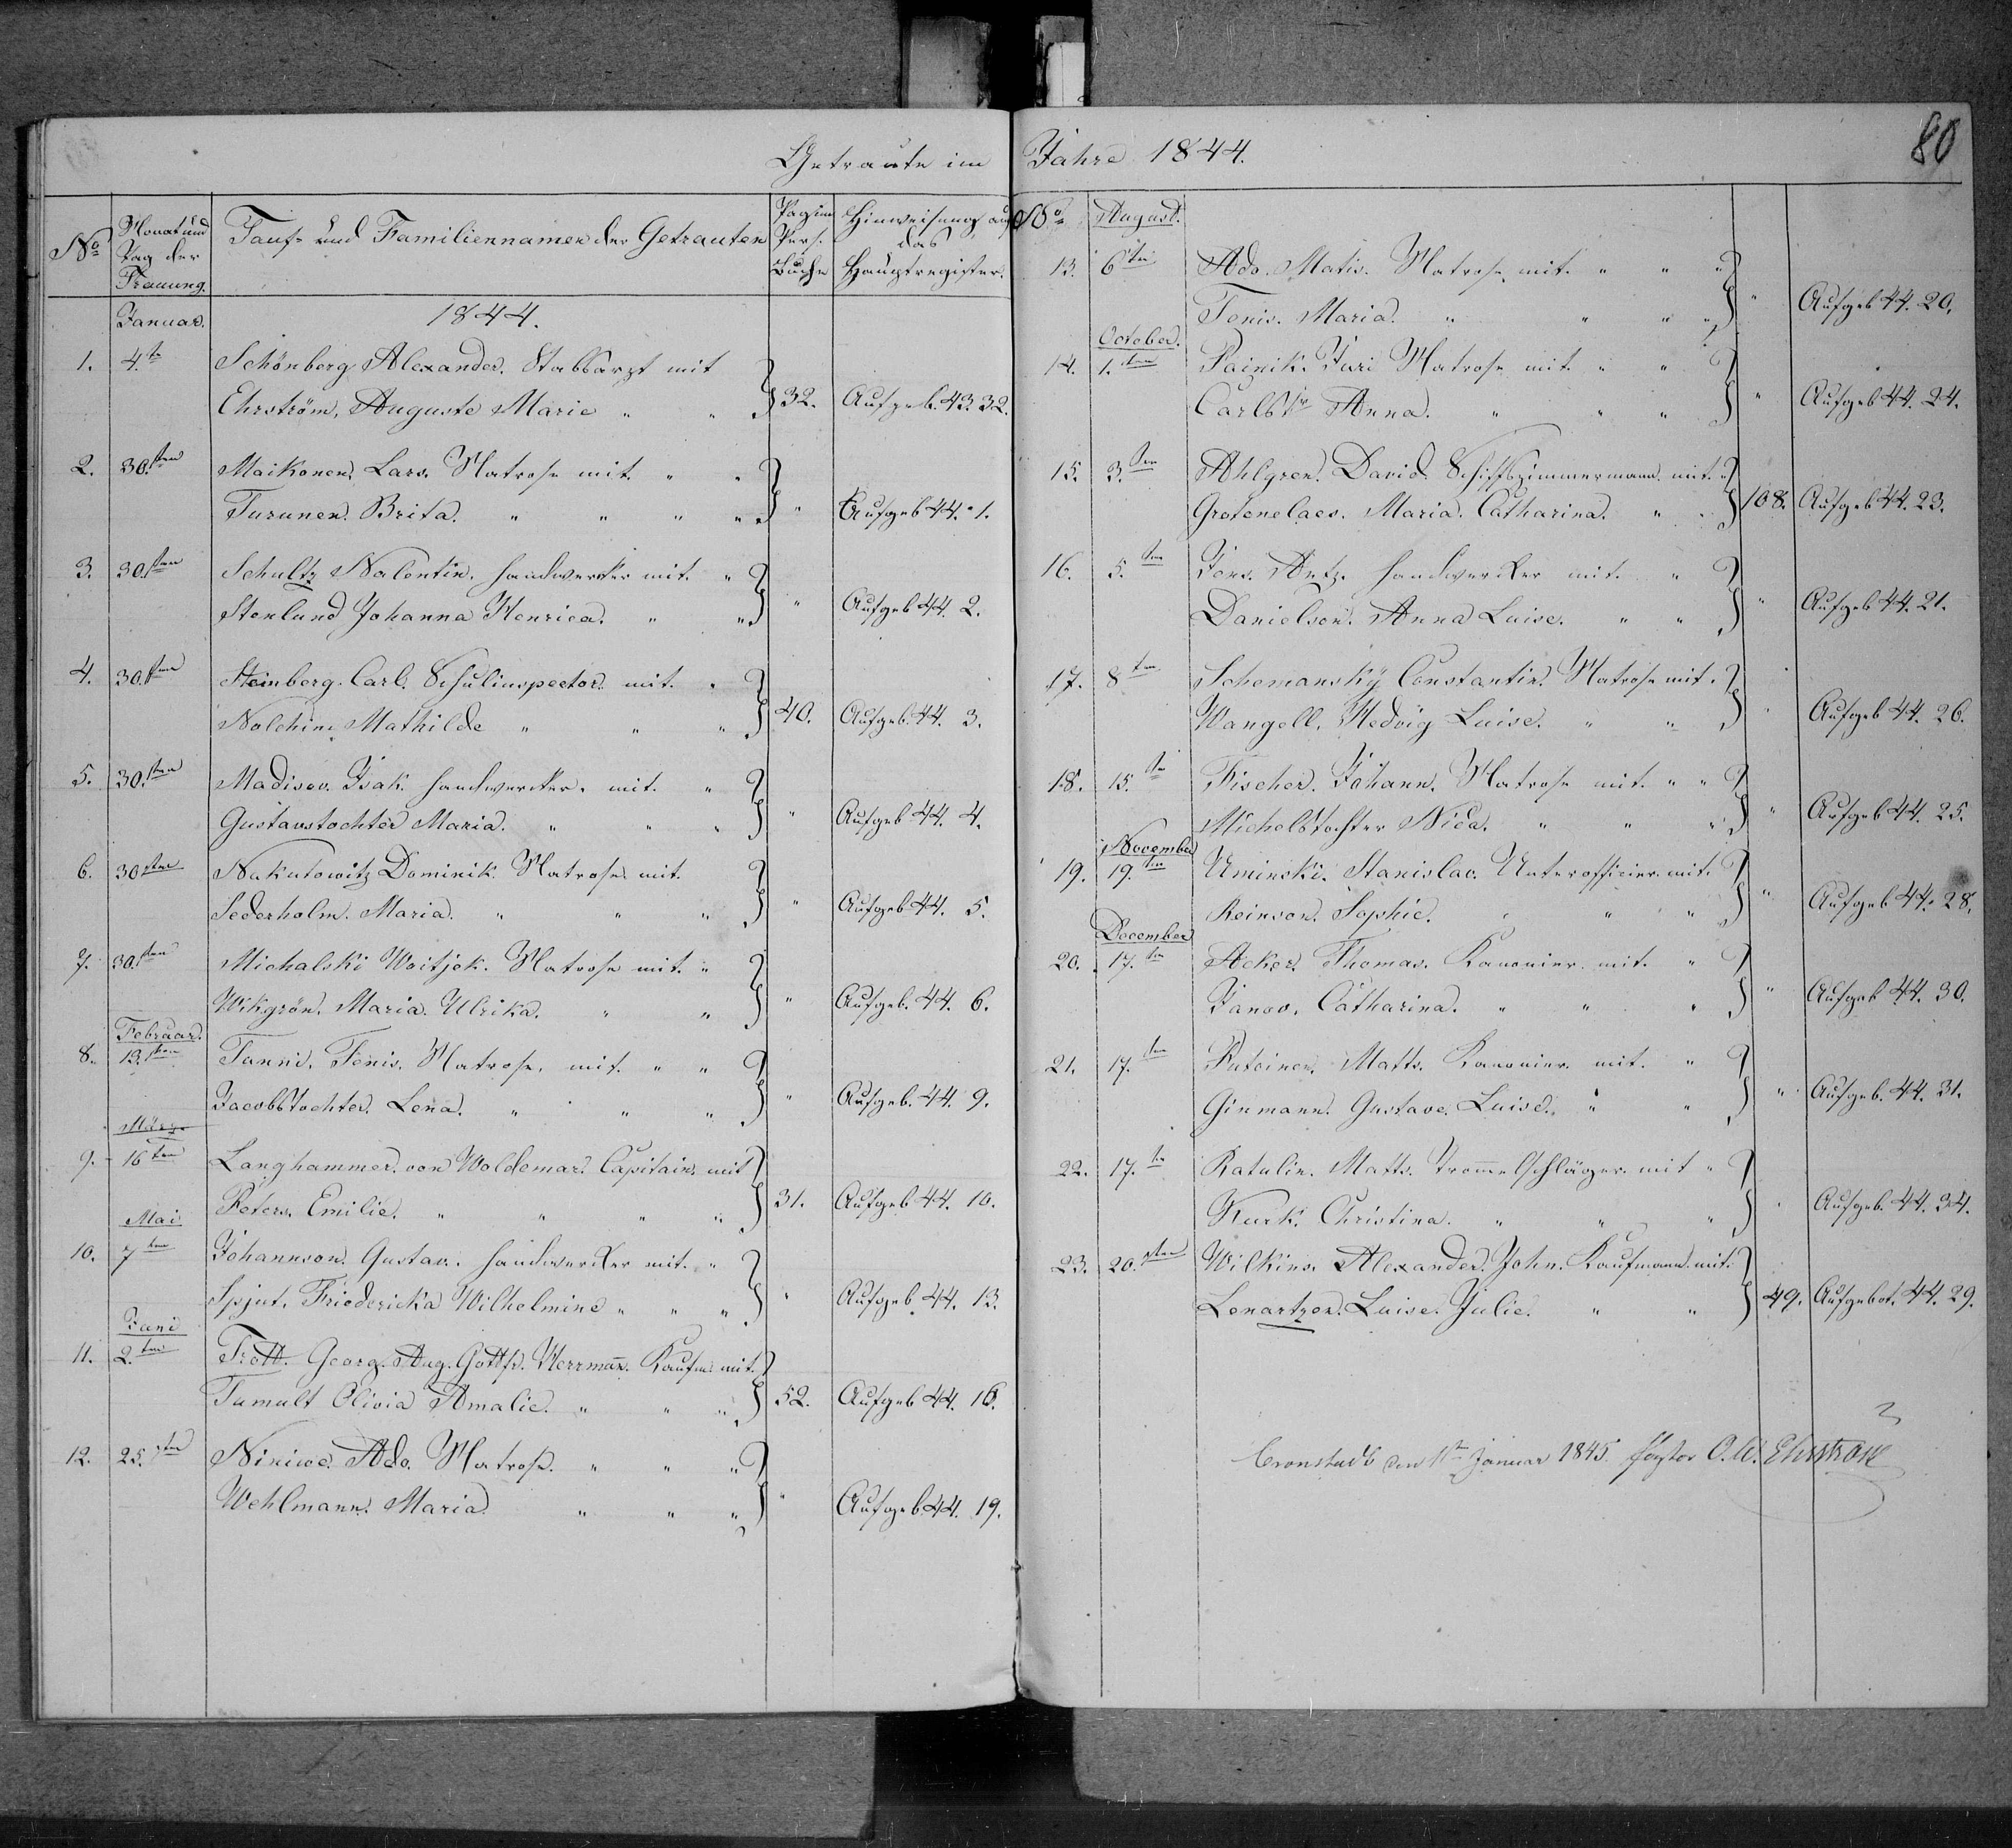 Getraute im Jahre 1844.
80
No
Monat und Tag der Trauung.
Tauf- und Familiennamen der Getrauten
Pagina Pers. Buche
Hinweisung auf das Hauptregister.
Januar.
1844.
1. 4.te Schönberg Alexander. Stabsarzt mit
Ehrström, Auguste Marie " " 32. Aufgeb. 43. 32.
2. 30.sten Maikonen. Lars. Matrose mit. " "
Turunen. Brita. " " " " " Aufgeb 44. 1.
3. 30.sten Schultz Valentin. Handwerker mit. "
Stenlund Johanna Henrica. " " " Aufgeb 44. 2.
4. 30.sten Steinberg. Carl. Schulinspector. mit. "
Nolchin. Mathilde " " " 40. Aufgeb. 44. 3.
5. 30.sten Madisov. Isak. Handwerker. mit. "
Gustavstochter Maria. " " " " Aufgeb 44. 4.
6. 30sten Nakutowitz Dominik. Matrose mit.
Sederholm. Maria. " " " " Aufgeb 44. 5.
7. 30.sten Michalski Woitjek. Matrose mit. "
Wikgrön. Maria. Ulrika. " " " Aufgeb. 44. 6.
Februar.
8. 13.ten Tanni. Tenis. Matrose. mit. " "
Jacobstochter. Lena. " " " " Aufgeb. 44. 9.
März
9. 16ten Langhammer. von Woldemar. Capitain. mit
Peters. Emilie. " " " " 31. Aufgeb 44. 10.
Mai
10. 7ten Johannson. Gustav. Handwerker mit. "
Spjut. Friedericka Wilhelmine " " " " Aufgeb 44. 13.
Juni
11. 2.ten Trott. Georg. Aug. Gottfr. Herrmañ. Kaufm. mit.
Tumult Olivia Amalie. " " " 52. Aufgeb 44. 16.
12. 25.sten Niniwe. Ado. Matrose. " " "
Wehlmann. Maria. " " " " Aufgeb 44. 19.
No August.
13. 6ten Ado. Matis. Matrose mit. " " "
Tenis. Maria. " " " " " Aufgeb 44. 20.
October.
14. 1.ten Painik. Juri Matrose mit. " "
Carlstr Anna. " " " " Aufgeb 44. 24.
15. 3.ten Ahlgren. David. Schiffszimmermann. mit. "
Grotenelaes. Maria. Catharina. " " 108. Aufgeb 44. 23.
16. 5.ten Jens. Antz. Handwercker mit. "
Danielson. Anna Luise. " " " Aufgeb 44. 21.
17. 8ten Schemansky Constantin. Matrose mit.
Wangell. Hedvig Luise. " " " Aufgeb 44. 26.
18. 15.te Fischer. Johann. Matrose mit. " "
Michelstochter Nida. " " " " Aufgeb 44. 25.
November
19. 19.ten Uminski. Stanislav. Unterofficier. mit.
Reinson. Sophie. " " " " Aufgeb 44. 28.
December
20. 17.ten Acker. Thomas. Kanonier. mit. "
Janov. Catharina. " " " " Aufgeb 44. 30.
21. 17.ten Puteinen. Matts. Kanonier. mit. "
Ginmann. Gustave. Luise. " " " Aufgeb. 44. 31.
22. 17.te Ratulin. Matts. Trom̄elschläger. mit "
Kurk. Christina. " " " " Aufgeb. 44. 34.
23. 20.sten Wilkins. Alexander. John. Kaufmann. mit.
Lenartzen. Luise. Julie. " " 49. Aufgebot. 44. 29.
Cronstadt den 1ten Januar 1845. Pastor O. W. Ehrström